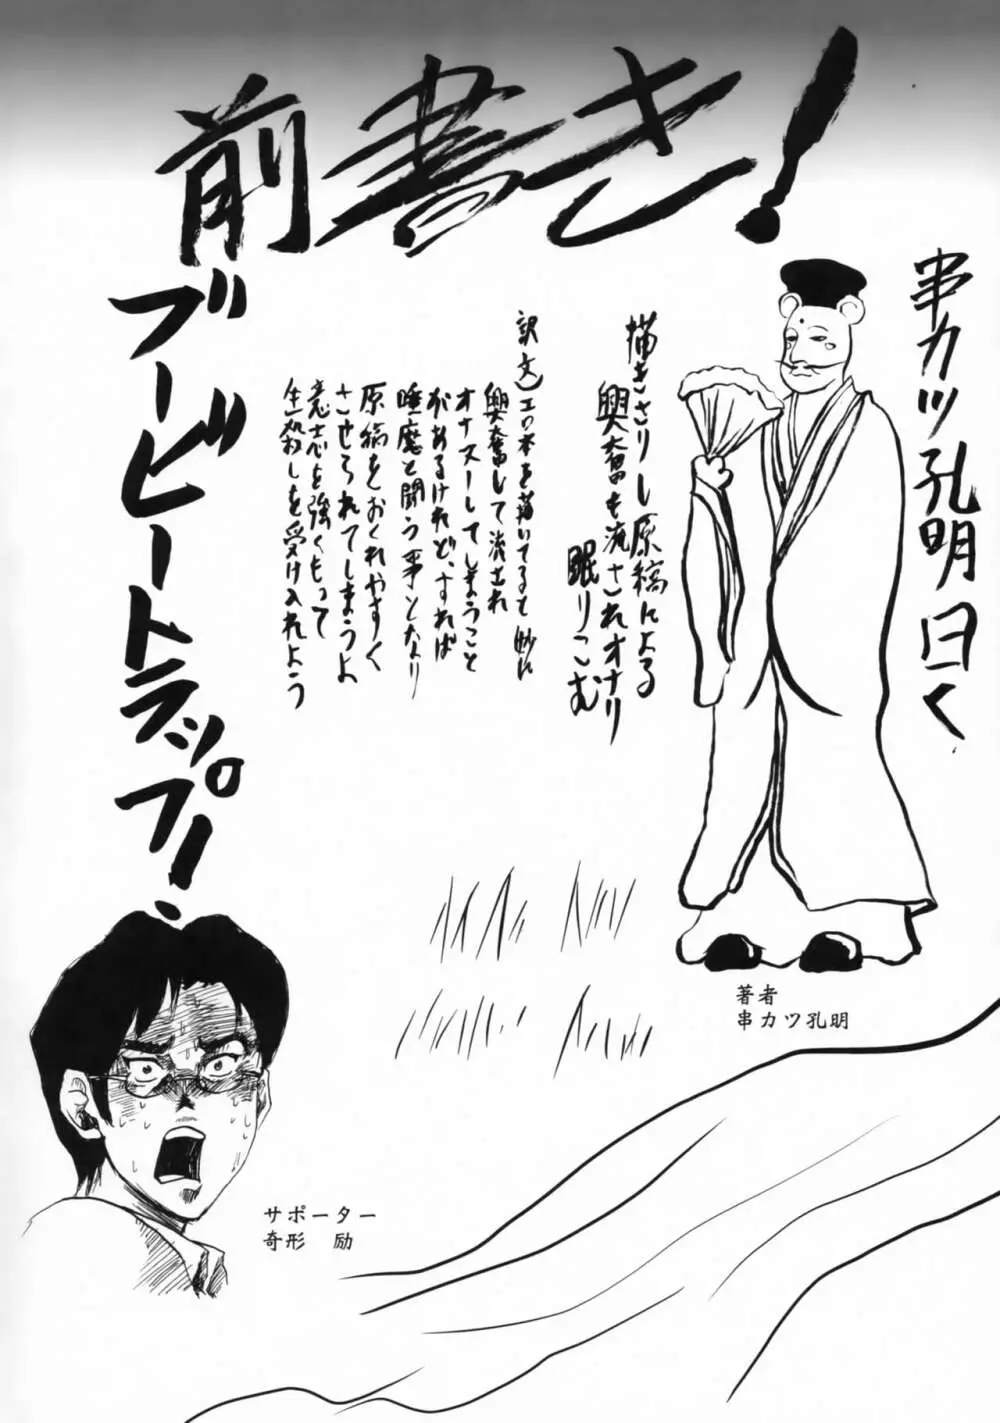 前書き！
串カツ孔明曰く
描きさりし原稿による
興奮も流されオナり
眠りこむ
訳文）エロ本を描いてるて妙に
興奮して流され
オナヌーしてしまうこと
があるけれど、すれば
睡魔と闘う事となり
原稿をおくれやすく
させられてしまうよ
意志を強くもって
生殺しを受け入れよう
ブービートラップ！
著者
串カツ孔明
サポーター
奇形　励